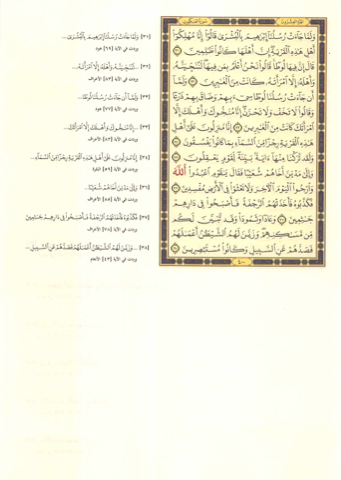 الجزء العشرون
سورة العنكبوت
وَلَمَّا جَاءَتْ رُسُلُنَا إِبْرَاهِيمَ بِالْبُشْرَىٰ قَالُوا إِنَّا مُهْلِكُوا
أَهْلِ هَٰذِهِ الْقَرْيَةِ إِنَّ أَهْلَهَا كَانُوا ظَالِمِينَ ٣١
قَالَ إِنَّ فِيهَا لُوطًا قَالُوا نَحْنُ أَعْلَمُ بِمَن فِيهَا لَنُنَجِّيَنَّهُ
وَأَهْلَهُ إِلَّا امْرَأَتَهُ كَانَتْ مِنَ الْغَابِرِينَ ٣٢ وَلَمَّا
أَن جَاءَتْ رُسُلُنَا لُوطًا سِيءَ بِهِمْ وَضَاقَ بِهِمْ ذَرْعًا
وَقَالُوا لَا تَخَفْ وَلَا تَحْزَنْ إِنَّا مُنَجُّوكَ وَأَهْلَكَ إِلَّا
امْرَأَتَكَ كَانَتْ مِنَ الْغَابِرِينَ ٣٣ إِنَّا مُنزِلُونَ عَلَىٰ أَهْلِ
هَٰذِهِ الْقَرْيَةِ رِجْزًا مِّنَ السَّمَاءِ بِمَا كَانُوا يَفْسُقُونَ ٣٤
وَلَقَد تَّرَكْنَا مِنْهَا آيَةً بَيِّنَةً لِّقَوْمٍ يَعْقِلُونَ ٣٥
وَإِلَىٰ مَدْيَنَ أَخَاهُمْ شُعَيْبًا فَقَالَ يَا قَوْمِ اعْبُدُوا اللَّهَ
وَارْجُوا الْيَوْمَ الْآخِرَ وَلَا تَعْثَوْا فِي الْأَرْضِ مُفْسِدِينَ ٣٦
فَكَذَّبُوهُ فَأَخَذَتْهُمُ الرَّجْفَةُ فَأَصْبَحُوا فِي دَارِهِمْ
جَاثِمِينَ ٣٧ وَعَادًا وَثَمُودَ وَقَد تَّبَيَّنَ لَكُم
مِّن مَّسَاكِنِهِمْ وَزَيَّنَ لَهُمُ الشَّيْطَانُ أَعْمَالَهُمْ
فَصَدَّهُمْ عَنِ السَّبِيلِ وَكَانُوا مُسْتَبْصِرِينَ ٣٨
٤٠٠
[٣١] وَلَمَّا جَاءَتْ رُسُلُنَا إِبْرَاهِيمَ بِالْبُشْرَىٰ...
وردت في الآية [٦٩] هود
[٣٢] ...لَنُنَجِّيَنَّهُ وَأَهْلَهُ إِلَّا امْرَأَتَهُ...
وردت في الآية [٨٣] الأعراف
[٣٣] وَلَمَّا أَن جَاءَتْ رُسُلُنَا لُوطًا...
وردت في الآية [٧٧] هود
[٣٣] ...إِنَّا مُنَجُّوكَ وَأَهْلَكَ إِلَّا امْرَأَتَكَ...
وردت في الآية [٨٣] الأعراف
[٣٤] إِنَّا مُنزِلُونَ عَلَىٰ أَهْلِ هَٰذِهِ الْقَرْيَةِ رِجْزًا مِّنَ السَّمَاءِ...
وردت في الآية [٥٩] البقرة
[٣٦] وَإِلَىٰ مَدْيَنَ أَخَاهُمْ شُعَيْبًا...
وردت في الآية [٨٥] الأعراف
[٣٧] فَكَذَّبُوهُ فَأَخَذَتْهُمُ الرَّجْفَةُ فَأَصْبَحُوا فِي دَارِهِمْ جَاثِمِينَ
وردت في الآية [٧٨] الأعراف
[٣٨] ...وَزَيَّنَ لَهُمُ الشَّيْطَانُ أَعْمَالَهُمْ فَصَدَّهُمْ عَنِ السَّبِيلِ...
وردت في الآية [٤٣] الأنعام